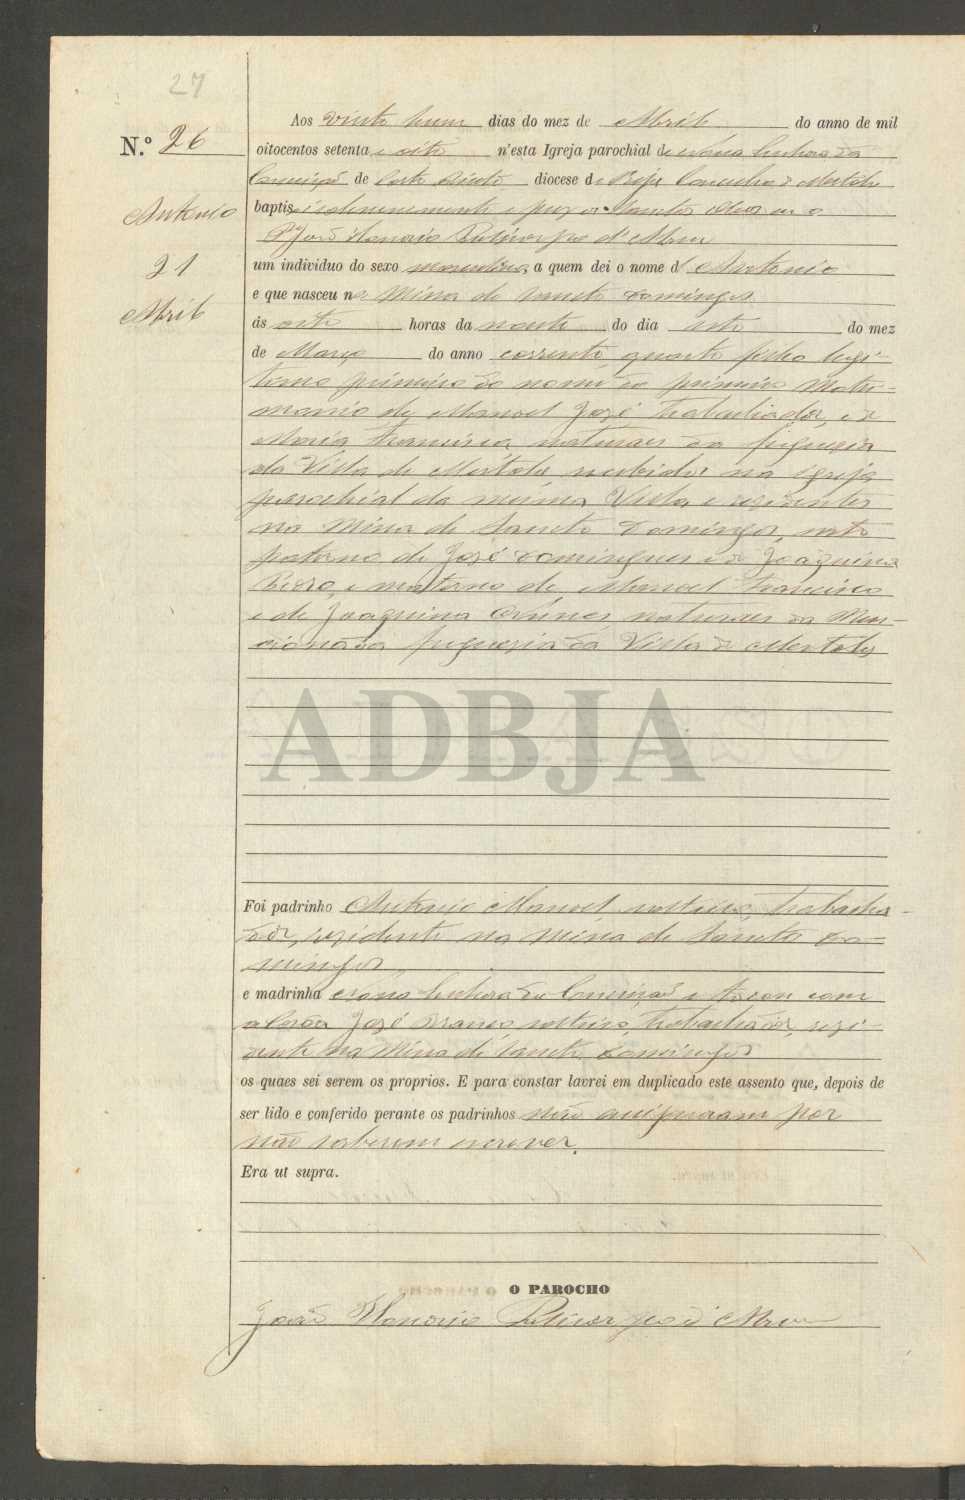 27
N.º 26
Antonio
21
Abril
Aos vinte hum dias do mez de Abril do anno de mil
oitocentos setenta e oito n'esta Igreja parochial de Nossa Senhora da
Conceição de Corte Pinto diocese de Beja Concelho de Mertola
baptisei solemnemente e puz os Sanctos Oleos eu o
P. João Honorio d'Abreu
um individuo do sexo masculino, a quem dei o nome d' Antonio
e que nasceu na Mina de Sancto Domingos
ás oito horas da noute do dia oito do mez
de Março do anno corrente, quarto filho legi-
timo primeiro do nome do primeiro Matri-
monio de Manoel José, Trabalhador, e de
Maria Francisca, naturaes da freguezia
da Villa de Mertola recebidos na Egreja
parochial da mesma Villa e rezidentes
na Mina de Sancto Domingos, neto
paterno de José Domingues e de Joaquina
e materno de Manoel Francisco
e de Joaquina naturaes da Men-
cionada freguezia da Villa de Mertola
ADBJA
Foi padrinho Antonio Manoel solteiro, Trabalha-
dor, rezidente na Mina de Sancto Do-
mingos
e madrinha Nossa Senhora da Conceição e tocou com
a Corôa José solteiro, Trabalhador, rezi-
dente na Mina de Sancto Domingos
os quaes sei serem os proprios. E para constar lavrei em duplicado este assento que, depois de
ser lido e conferido perante os padrinhos não assignaram por
não saberem escrever.
Era ut supra.
O PAROCHO
João Honorio d'Abreu